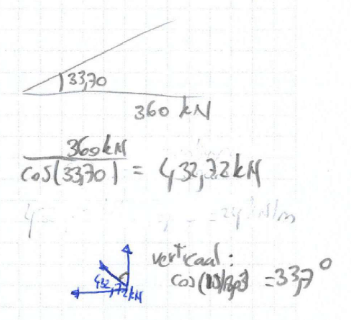 33,70
360 kN
360kN
cos(33,70) = 432,72kN
432,72kN
verticaal:
cos( ) = 33,7°